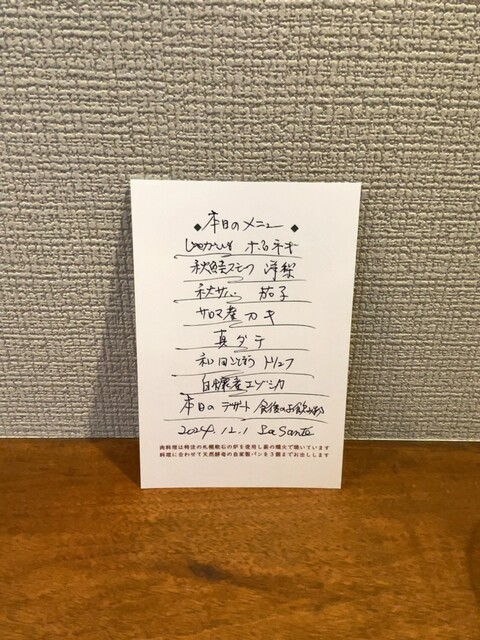 ◆本日のメニュー◆
じゃがいも ポロネギ
秋鮭スモーク 洋梨
秋サバ 茄子
サロマ産カキ
真ダテ
和田ごぼう トリュフ
白糠産エゾシカ
本日のデザート 食後のお飲み物
2024.12.1 La Santé
肉料理は特注の札幌軟石の炉を使用し薪の熾火で焼いています
料理に合わせて天然酵母の自家製パンを3種までお出しします